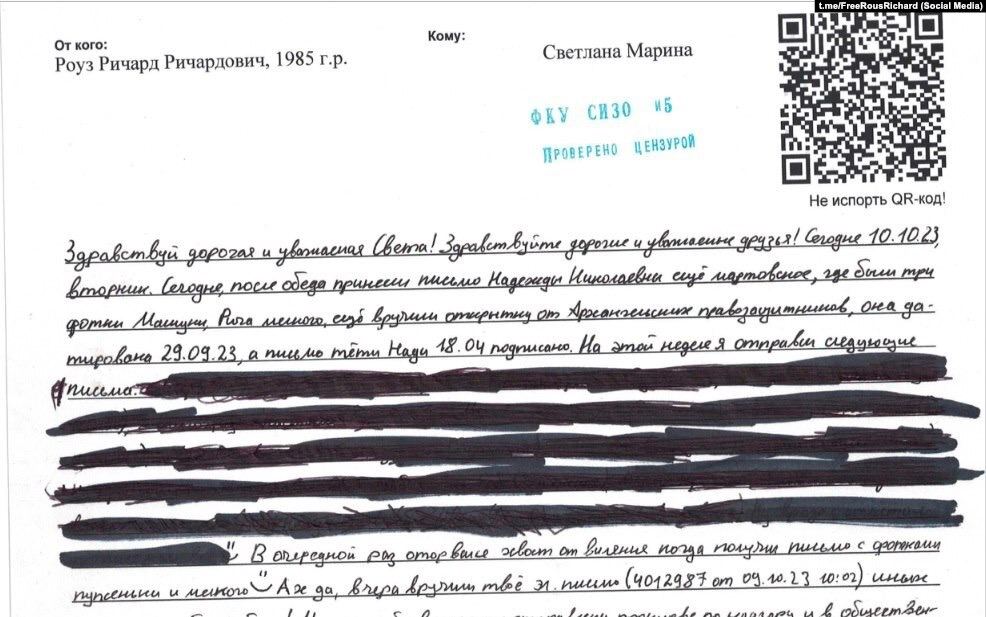 t.me/FreeRousRichard (Social Media)
От кого:
Роуз Ричард Ричардович, 1985 г.р.
Кому:
Светлана Марина
ФКУ СИЗО И5
ПРОВЕРЕНО ЦЕНЗУРОЙ
Не испорть QR-код!
Здравствуй дорогая и уважаемая Света! Здравствуйте дорогие и уважаемые друзья! Сегодня 10.10.23,
вторник. Сегодня, после обеда принесли письмо Надежды Николаевны ещё мартовское, где были три
фотки Машуни, Рича мелкого, ещё вручили открытку от Архангельских правозащитников, она да-
тирована 29.09.23, а письмо тёти Нади 18.04 подписано. На этой неделе я отправил следующие
письма:
В очередной раз оторвался хвост от виления когда получил письмо с фотками
пупсеныш и мелкого Ах да, вчера вручили твоё эл. письмо (4012987 от 09.10.23 10:02) иных
и в обществен-